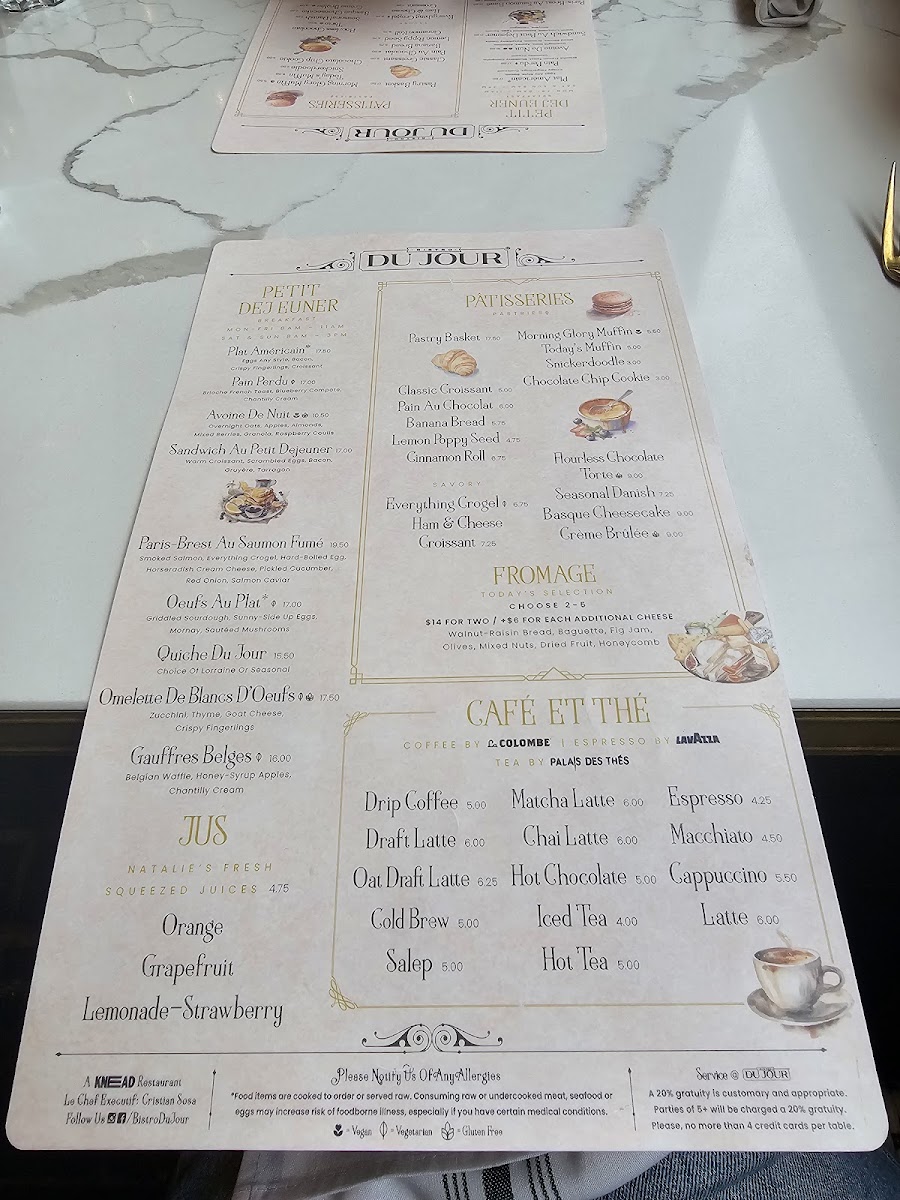 BISTRO
DU JOUR
PETIT
DEJEUNER
BREAKFAST
MON-FRI 8AM - 11AM
SAT & SUN 8AM - 3PM
Plat Américain* 17.50
Eggs Any Style, Bacon,
Crispy Fingerlings, Croissant
Pain Perdu 17.00
Brioche French Toast, Blueberry Compote,
Chantilly Cream
Avoine De Nuit 10.50
Overnight Oats, Apples, Almonds,
Mixed Berries, Granola, Raspberry Coulis
Sandwich Au Petit Dejeuner 17.00
Warm Croissant, Scrambled Eggs, Bacon,
Gruyère, Tarragon
Paris-Brest Au Saumon Fumé 19.50
Smoked Salmon, Everything Crogel, Hard-Boiled Egg,
Horseradish Cream Cheese, Pickled Cucumber,
Red Onion, Salmon Caviar
Oeufs Au Plat* 17.00
Griddled Sourdough, Sunny-Side Up Eggs,
Mornay, Sautéed Mushrooms
Quiche Du Jour 15.50
Choice Of Lorraine Or Seasonal
Omelette De Blancs D'Oeufs 17.50
Zucchini, Thyme, Goat Cheese,
Crispy Fingerlings
Gauffres Belges 16.00
Belgian Waffle, Honey-Syrup Apples,
Chantilly Cream
JUS
NATALIE'S FRESH
SQUEEZED JUICES 4.75
Orange
Grapefruit
Lemonade-Strawberry
PÂTISSERIES
PASTRIES
Pastry Basket 17.50
Classic Croissant 5.00
Pain Au Chocolat 6.00
Banana Bread 5.75
Lemon Poppy Seed 4.75
Cinnamon Roll 6.75
SAVORY
Everything Crogel 6.75
Ham & Cheese
Croissant 7.25
Morning Glory Muffin 5.50
Today's Muffin 5.00
Snickerdoodle 3.00
Chocolate Chip Cookie 3.00
Flourless Chocolate
Torte 9.00
Seasonal Danish 7.25
Basque Cheesecake 9.00
Crème Brûlée 9.00
FROMAGE
TODAY'S SELECTION
CHOOSE 2-5
$14 FOR TWO / +$6 FOR EACH ADDITIONAL CHEESE
Walnut-Raisin Bread, Baguette, Fig Jam,
Olives, Mixed Nuts, Dried Fruit, Honeycomb
CAFÉ ET THÉ
COFFEE BY La COLOMBE | ESPRESSO BY LAVAZZA
TEA BY PALAIS DES THÉS
Drip Coffee 5.00
Draft Latte 6.00
Oat Draft Latte 6.25
Cold Brew 5.00
Salep 5.00
Matcha Latte 6.00
Chai Latte 6.00
Hot Chocolate 5.00
Iced Tea 4.00
Hot Tea 5.00
Espresso 4.25
Macchiato 4.50
Cappuccino 5.50
Latte 6.00
A KNEAD Restaurant
Le Chef Executif: Cristian Sosa
Follow Us /BistroDuJour
Please Notify Us Of Any Allergies
*Food items are cooked to order or served raw. Consuming raw or undercooked meat, seafood or
eggs may increase risk of foodborne illness, especially if you have certain medical conditions.
= Vegan = Vegetarian = Gluten Free
Service @ DU JOUR
A 20% gratuity is customary and appropriate.
Parties of 5+ will be charged a 20% gratuity.
Please, no more than 4 credit cards per table.
DU JOUR
PETIT
DEJEUNER
PÂTISSERIES
Pastry Basket
Classic Croissant
Pain Au Chocolat
Banana Bread
Lemon Poppy Seed
Morning Glory Muffin
Today's Muffin
Snickerdoodle
Chocolate Chip Cookie
Plat Américain*
Pain Perdu
Avoine De Nuit
Sandwich Au Petit Dejeuner